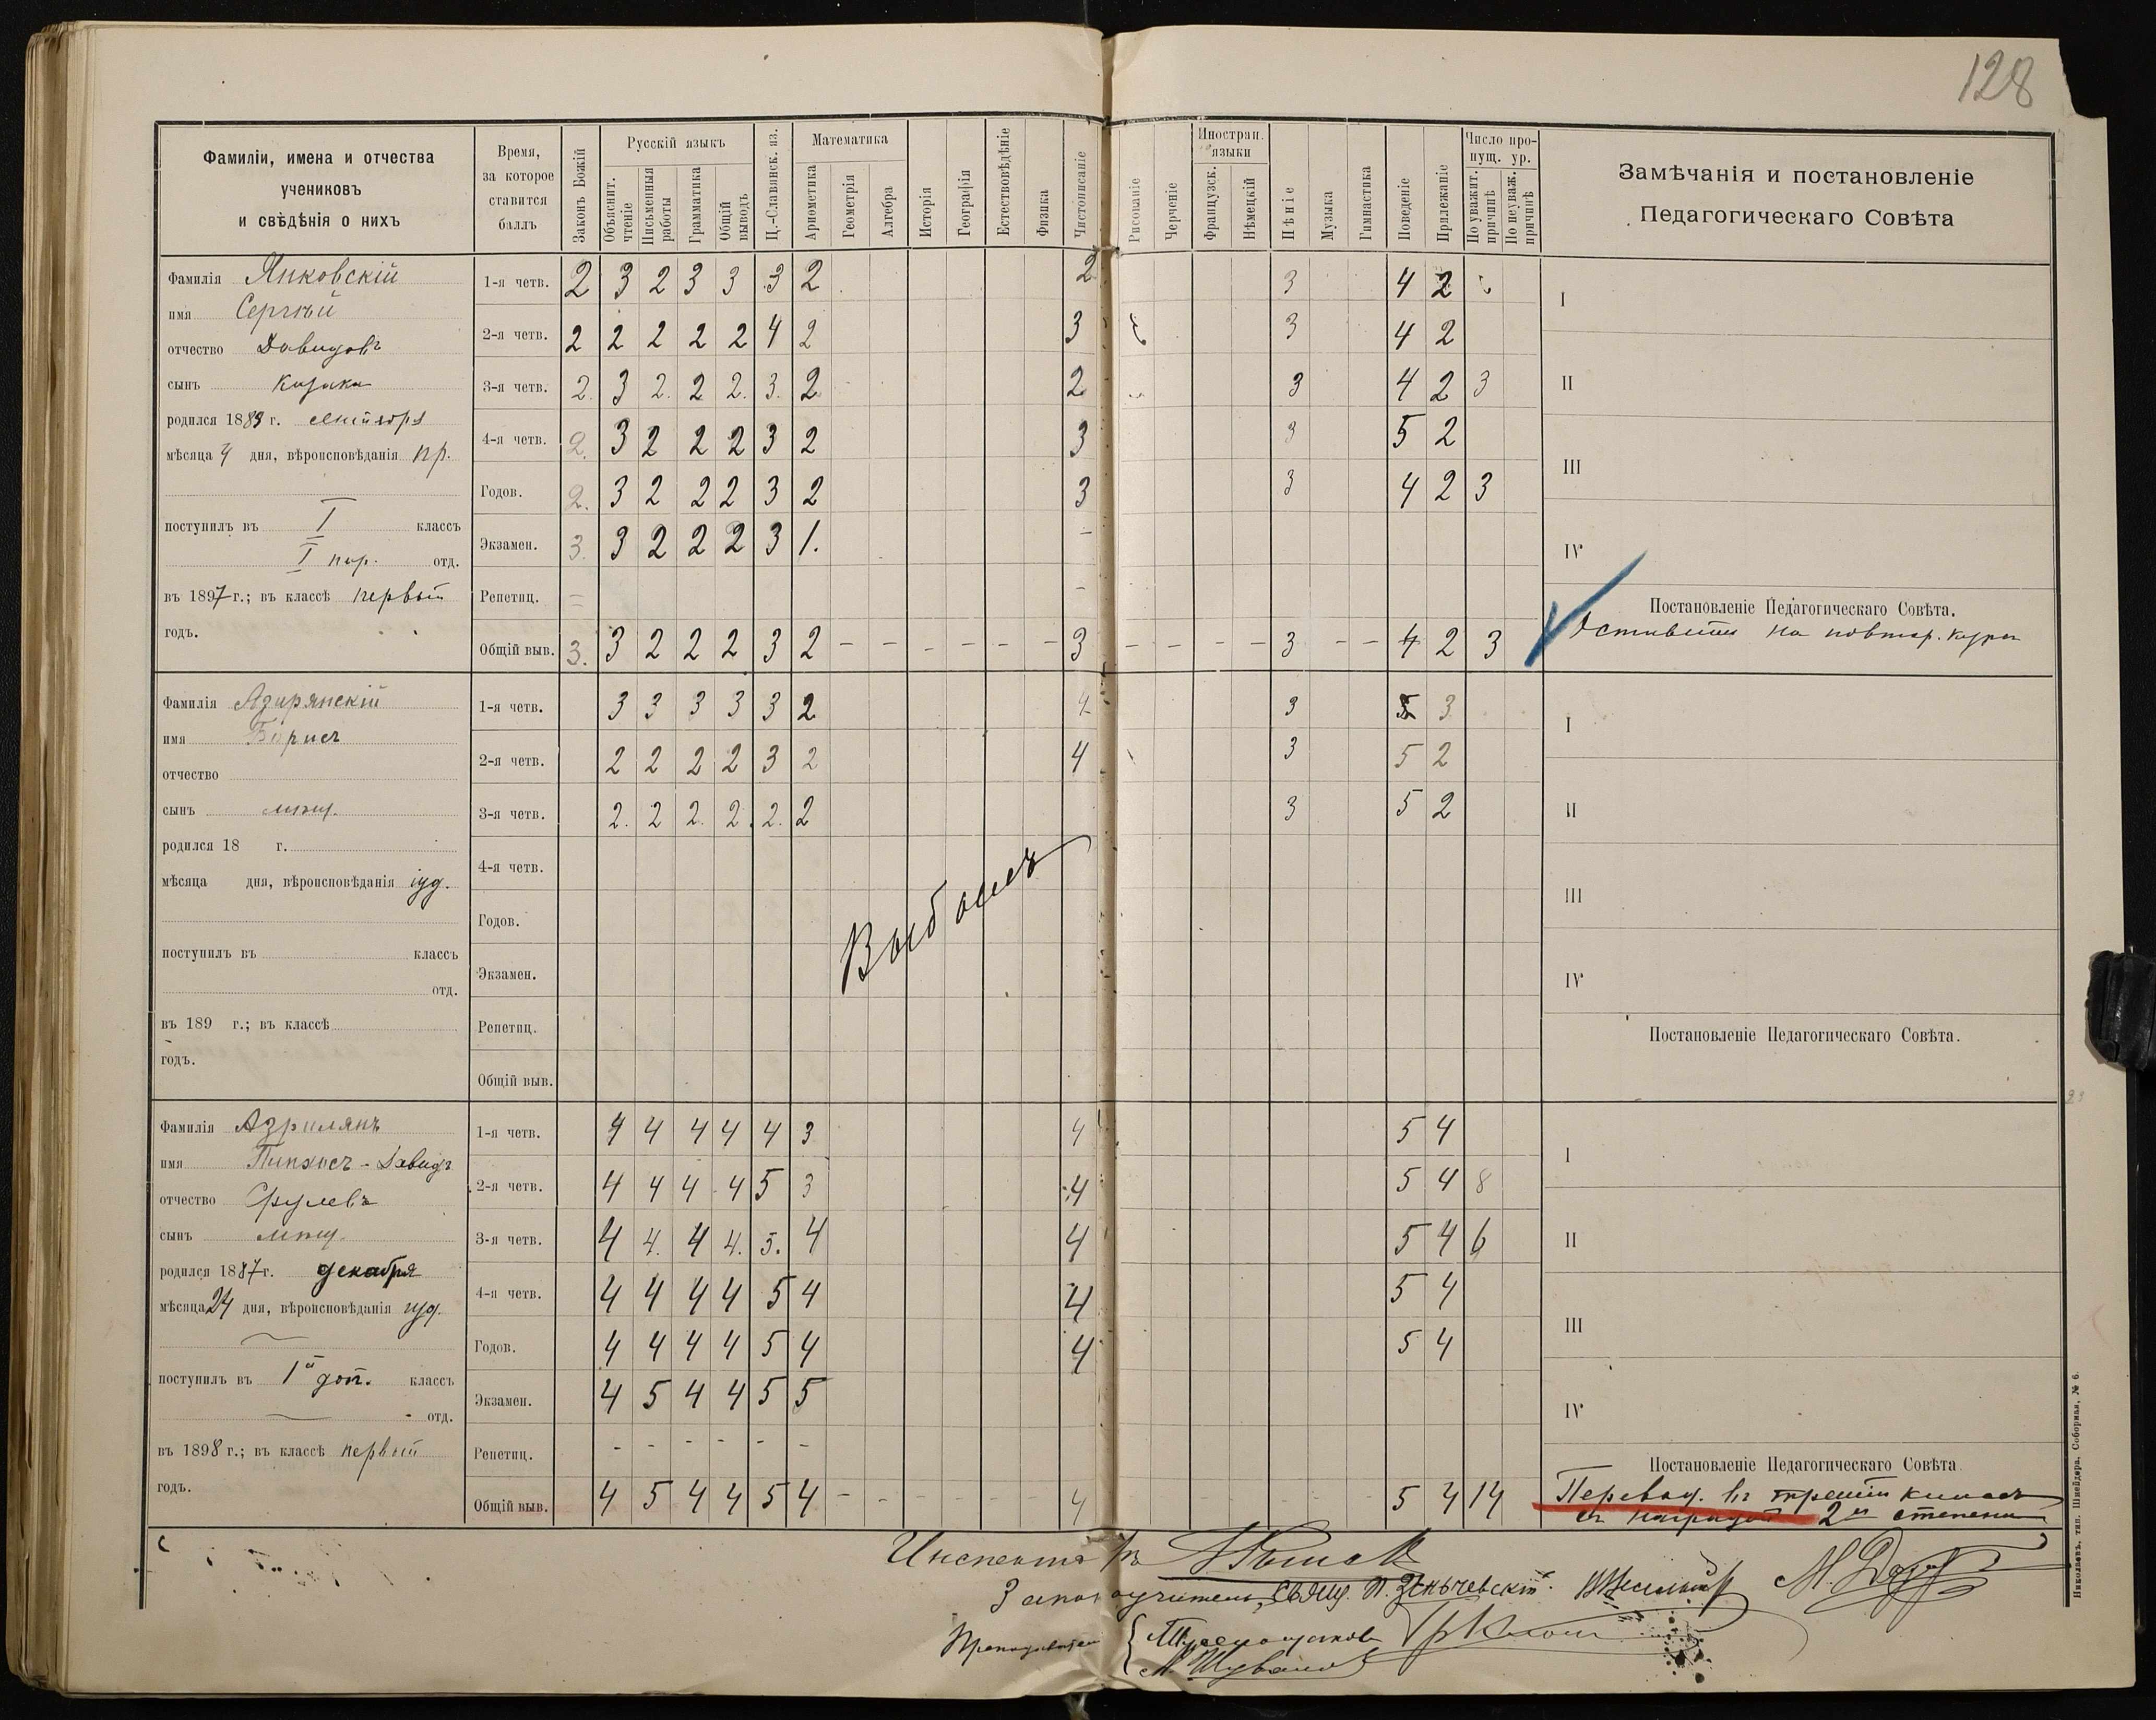 128
Фамиліи, имена и отчества
учениковъ
и свѣдѣнія о нихъ
Время,
за которое
ставится
баллъ
Законъ Божій
Русскій языкъ
Объяснит. чтеніе
Письменныя работы
Грамматика
Общій выводъ
Ц.-Славянск. яз.
Математика
Ариѳметика
Геометрія
Алгебра
Исторія
Географія
Естествовѣдѣніе
Физика
Чистописаніе
Рисованіе
Черченіе
Иностран. языки
Французск.
Нѣмецкій
Пѣніе
Музыка
Гимнастика
Поведеніе
Прилежаніе
Число пропущ. ур.
По уважит. причинѣ
По неуваж. причинѣ
Замѣчанія и постановленіе
Педагогическаго Совѣта
Фамилія Янковскій
имя Сергѣй
отчество Давидовъ
сынъ казака
родился 1883 г. сентября
мѣсяца 4 дня, вѣроисповѣданія пр.
поступилъ въ I классъ
I пар. отд.
въ 1897 г.; въ классѣ первый
годъ.
1-я четв. 2 3 2 3 3 3 2 2 3 4 2
2-я четв. 2 2 2 2 2 4 2 3 3 4 2
3-я четв. 2. 3 2. 2 2. 3. 2 2 3 4 2 3
4-я четв. 2. 3 2 2 2 3 2 3 3 5 2
Годов. 2. 3 2 2 2 3 2 3 3 4 2 3
Экзамен. 3. 3 2 2 2 3 1. -
Репетиц. = -
Общій выв. 3. 3 2 2 2 3 2 - - - - - - 3 - - - - 3 - - 4 2 3
I
II
III
IV
Постановленіе Педагогическаго Совѣта.
Оставить на повтор. курсъ
Фамилія
имя Борисъ
отчество
сынъ мѣщ.
родился 18 г.
мѣсяца дня, вѣроисповѣданія іуд.
поступилъ въ классъ
отд.
въ 189 г.; въ классѣ
годъ.
1-я четв. 3 3 3 3 3 2 4 3 5 3
2-я четв. 2 2 2 2 3 2 4 3 5 2
3-я четв. 2. 2 2. 2. 2. 2 3 5 2
4-я четв.
Годов.
Экзамен.
Репетиц.
Общій выв.
Выбылъ
I
II
III
IV
Постановленіе Педагогическаго Совѣта.
Фамилія Азрилянъ
имя Пинхосъ-Давидъ
отчество Срулевъ
сынъ мѣщ.
родился 1887 г. декабря
мѣсяца 24 дня, вѣроисповѣданія іуд.
поступилъ въ 1й доп. классъ
отд.
въ 1898 г.; въ классѣ первый
годъ.
1-я четв. 4 4 4 4 4 3 4 5 4
2-я четв. 4 4 4 4 5 3 4 5 4 8
3-я четв. 4 4. 4 4. 5. 4 4 5 4 6
4-я четв. 4 4 4 4 5 4 4 5 4
Годов. 4 4 4 4 5 4 4 5 4
Экзамен. 4 5 4 4 5 5
Репетиц. - - - - - -
Общій выв. 4 5 4 4 5 4 - - - - - - 4 5 4 14
I
II
III
IV
Постановленіе Педагогическаго Совѣта
Перевод. въ третій классъ
съ наградой 2й степени
Инспекторъ
Законоучитель, свящ. П.
Преподаватели
М. Шувалов
Николаевъ, тип. Шнейдера, Соборная, № 6.